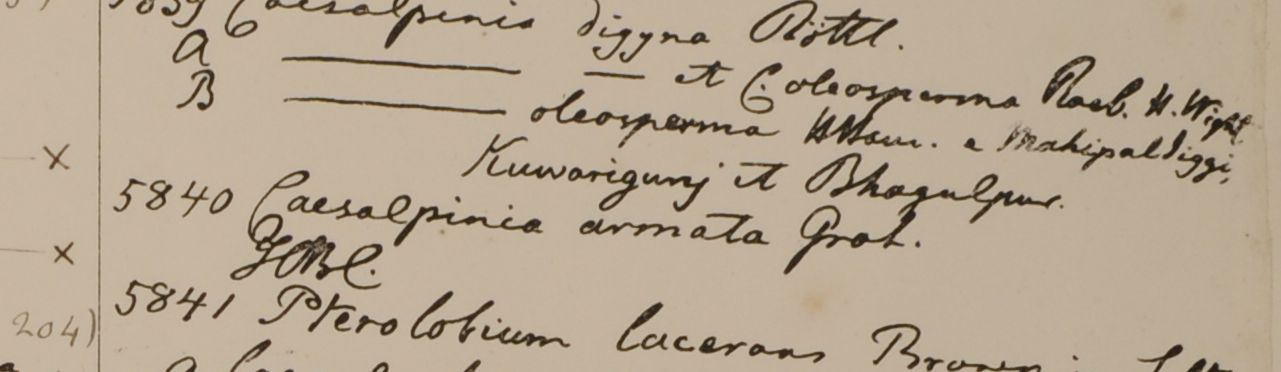 Caesalpinia digyna Röttl.
A ——— — et C. oleosperma Roxb. H. Wight
B ——— oleosperma HHam. e Mahipaldiggi,
× Kuwarigunj et Bhagulpur.
5840 Caesalpinia armata Grah.
× HBC.
5841 Pterolobium lacerans Brown
204)